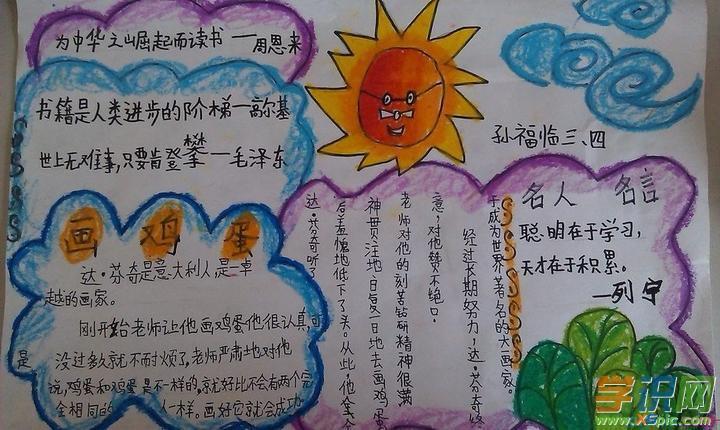 为中华之崛起而读书——周恩来
书籍是人类进步的阶梯—高尔基
世上无难事,只要肯登攀—毛泽东
孙福临三、四
画鸡蛋
达·芬奇是意大利人是一卓
越的画家。
刚开始老师让他画鸡蛋他很认真,可
是没过多久就不耐烦了,老师严肃地对他
说,鸡蛋和鸡蛋是不一样的,就好比不会有两个完
全相同的人一样。画好它就会成功
达·芬奇听了
后羞愧地低下了头。从此,他全
神贯注地日复一日地去画鸡蛋
老师对他的刻苦钻研精神很满
意,对他赞不绝口。
经过长期努力,达·芬奇终
于成为世界著名的大画家。
名人名言
聪明在于学习,
天才在于积累。
—列宁
学识网
www.XSpic.com